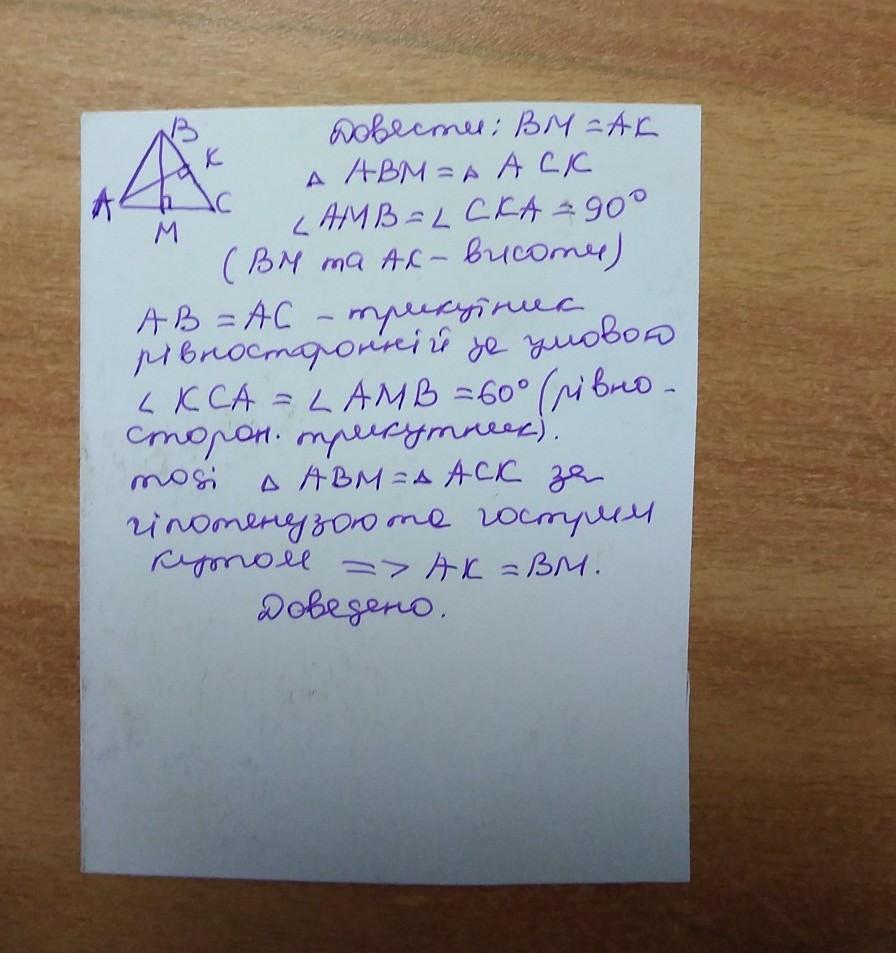 B
K
A
C
M
Довести: BM = AK
△ ABM = △ ACK
∠ AMB = ∠ CKA = 90°
( BM та AK - висоти)
AB = AC - трикутник
рівносторонній за умовою
∠ KCA = ∠ AMB = 60° (рівно-
сторон. трикутник).
тоді △ ABM = △ ACK за
гіпотенузою та гострим
кутом => AK = BM.
Доведено.